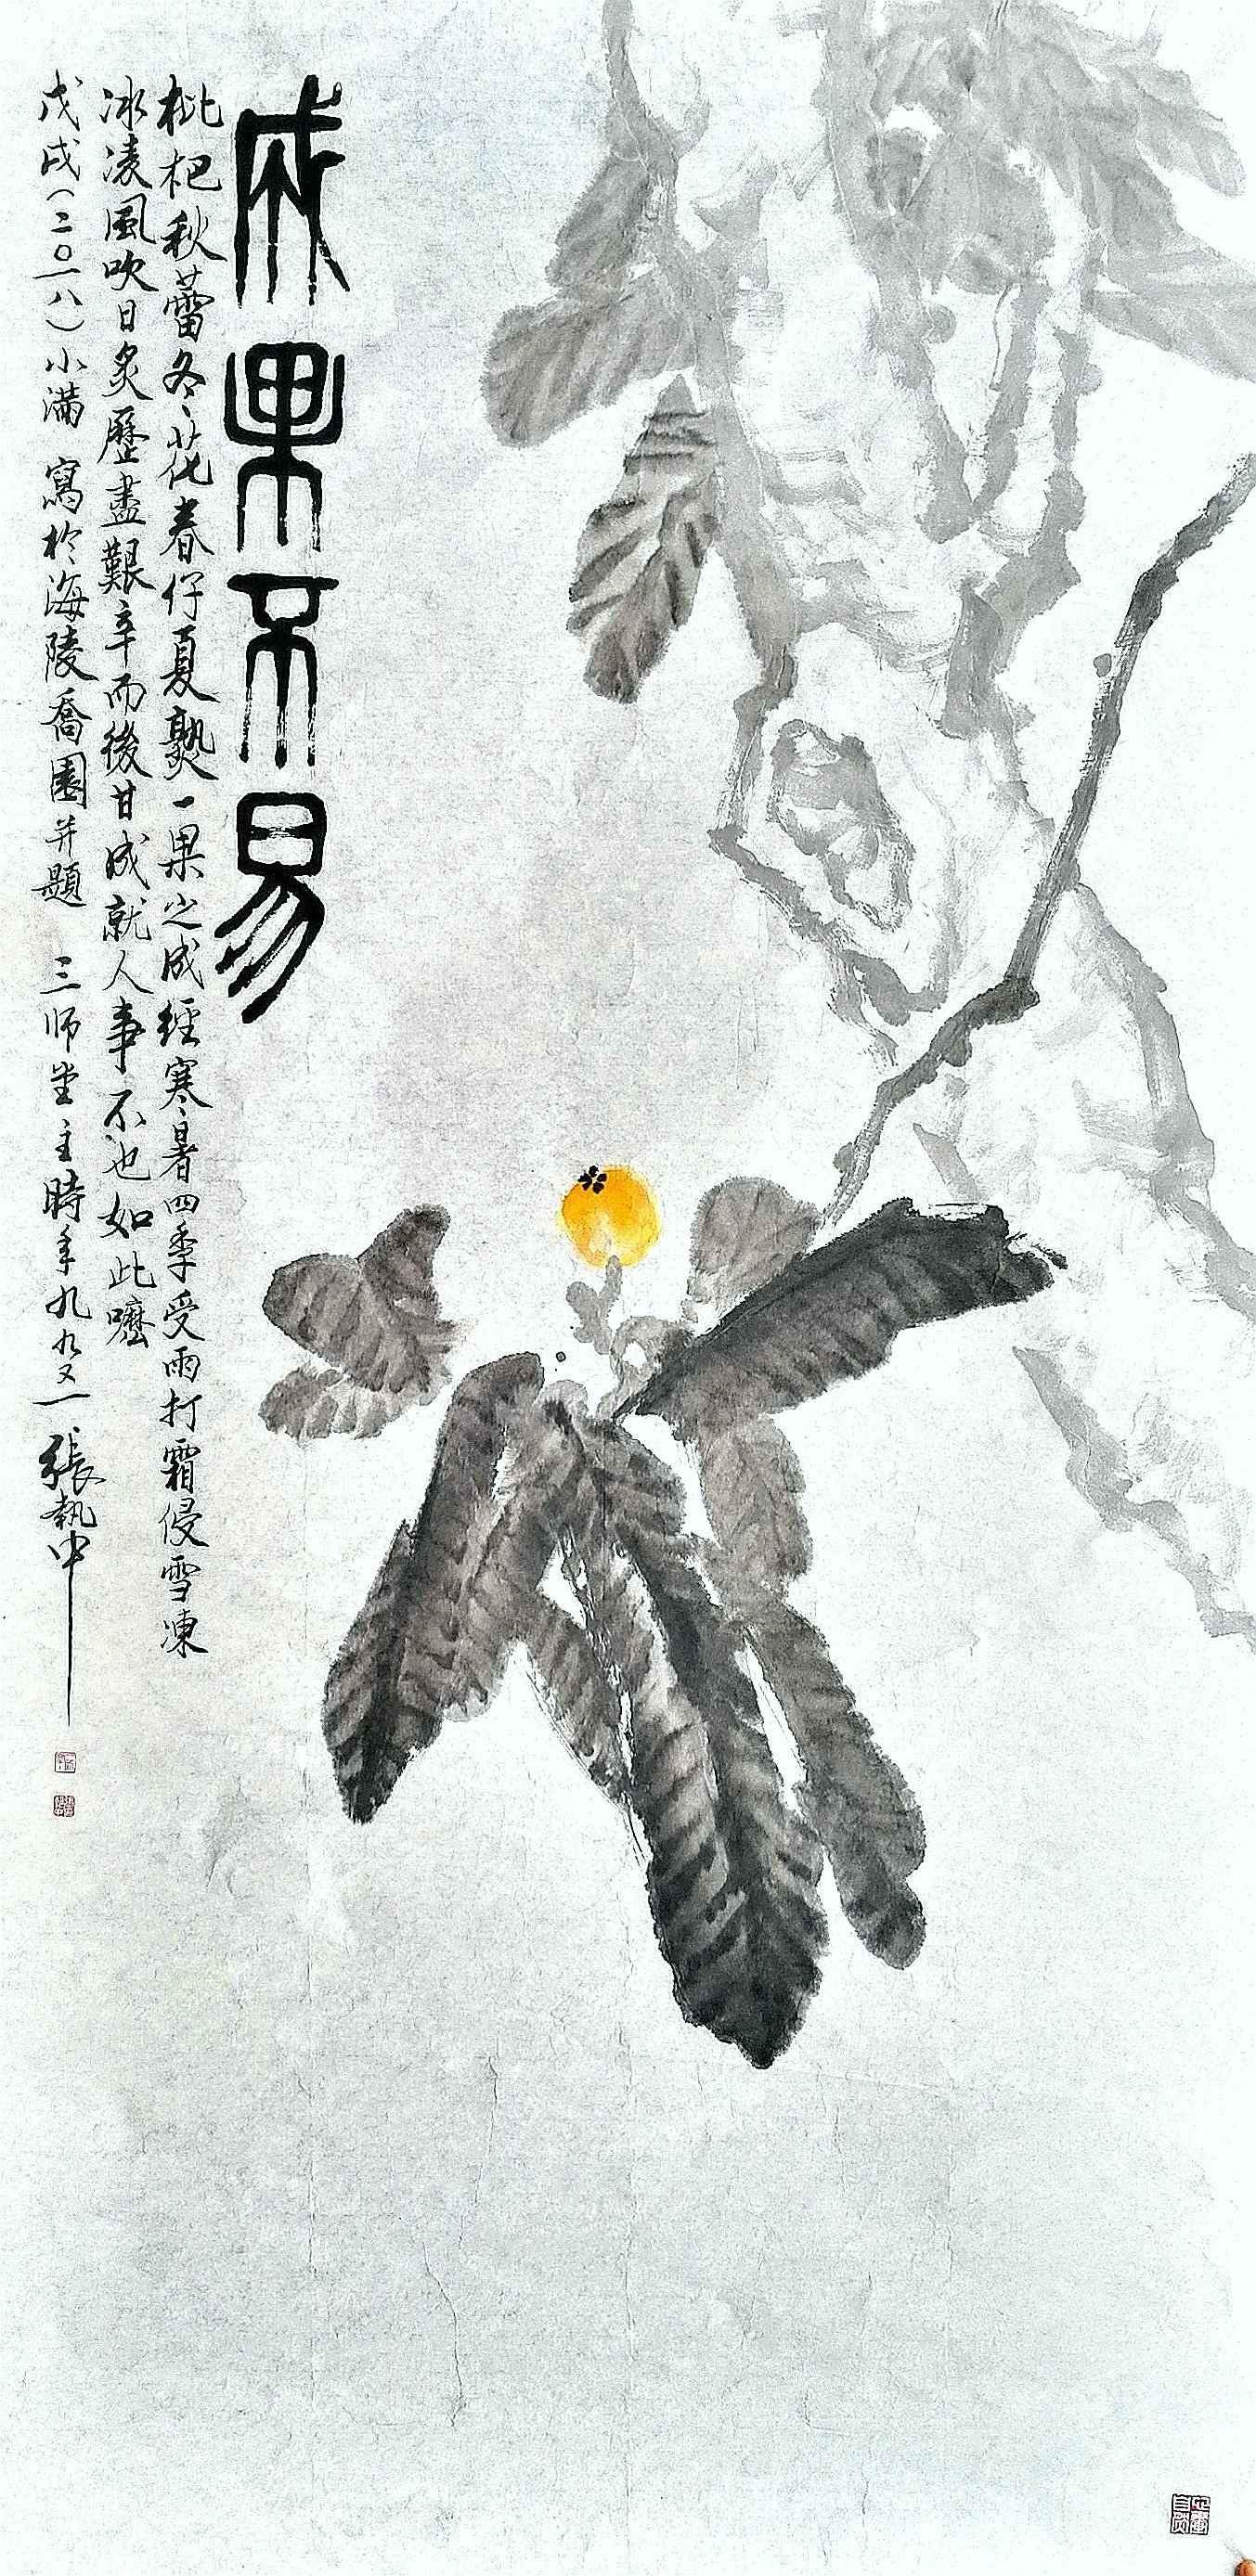 成果不易
枇杷秋蕾冬花春仔夏熟一果之成經寒暑四季受雨打霜侵雪凍
冰凌風吹日炙歷盡艱辛而後甘成就人事不也如此嚒
戊戌(二〇一八)小滿 寫於海陵喬園并題 三师堂主時年九九又一 張執中